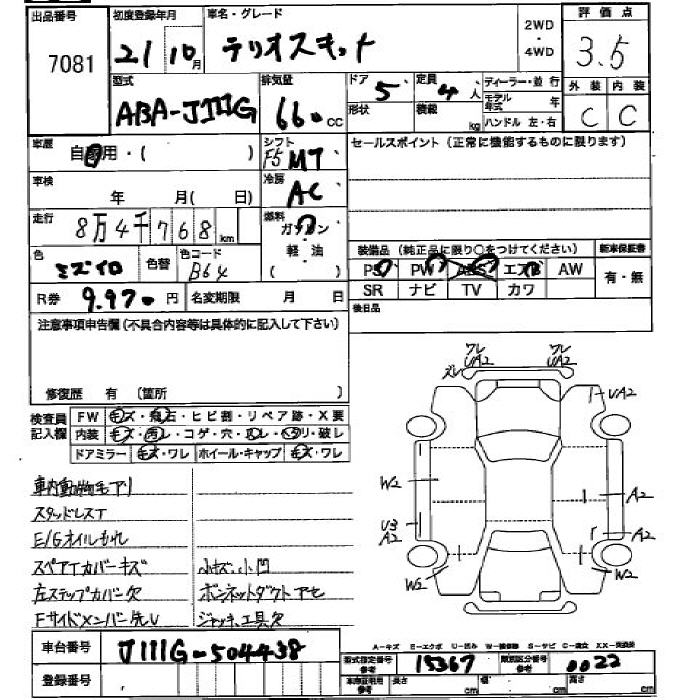 出品番号 初度登録年月 車名・グレード 2WD・4WD 評価点
7081 21 10月 テリオスキッド 3.5
型式 排気量 ドア 定員 ディーラー・並行 外装 内装
ABA-J111G 660cc 5 4人 モデル年式 年 C C
形状 積載 kg ハンドル 左・右
車歴 自家用・( ) シフト F5 MT セールスポイント(正常に機能するものに限ります)
車検 年 月(日) 冷房 AC
走行 8万4千768km 燃料 ガソリン・軽油( )
色 ミズイロ 色替 色コード B64 装備品(純正品に限り○をつけてください) 新車保証書
PS PW ABS エアB AW 有・無
R券 9.970円 名変期限 月 日 SR ナビ TV カワ
注意事項申告欄(不具合内容等は具体的に記入して下さい) 後日品
修復歴 有 (箇所 )
ワレ UA2 ワレ UA2
ズレ
UA2
検査員記入欄 FW キズ・飛石・ヒビ割・リペア跡・X要
内装 キズ・汚れ・コゲ・穴・スレ・ヘタリ・破レ
ドアミラー キズ・ワレ ホイール・キャップ キズ・ワレ
W2
A2
U3 A2
A2
W2
W2
車内動物毛アリ
スタッドレスT
E/Gオイルもれ
スペアTカバーキズ 小キズ、小凹
左ステップカバー欠 ボンネットダクトアセ
Fサイドメンバー先U ジャッキ、工具欠
A-キズ E-エクボ U-凹み W-補修跡 S-サビ C-腐食 XX-交換済
車台番号 J111G-504438 型式指定番号 参考 15367 類別区分番号 参考 0022
登録番号 車検証記載 参考 長さ cm 幅 cm 高さ cm